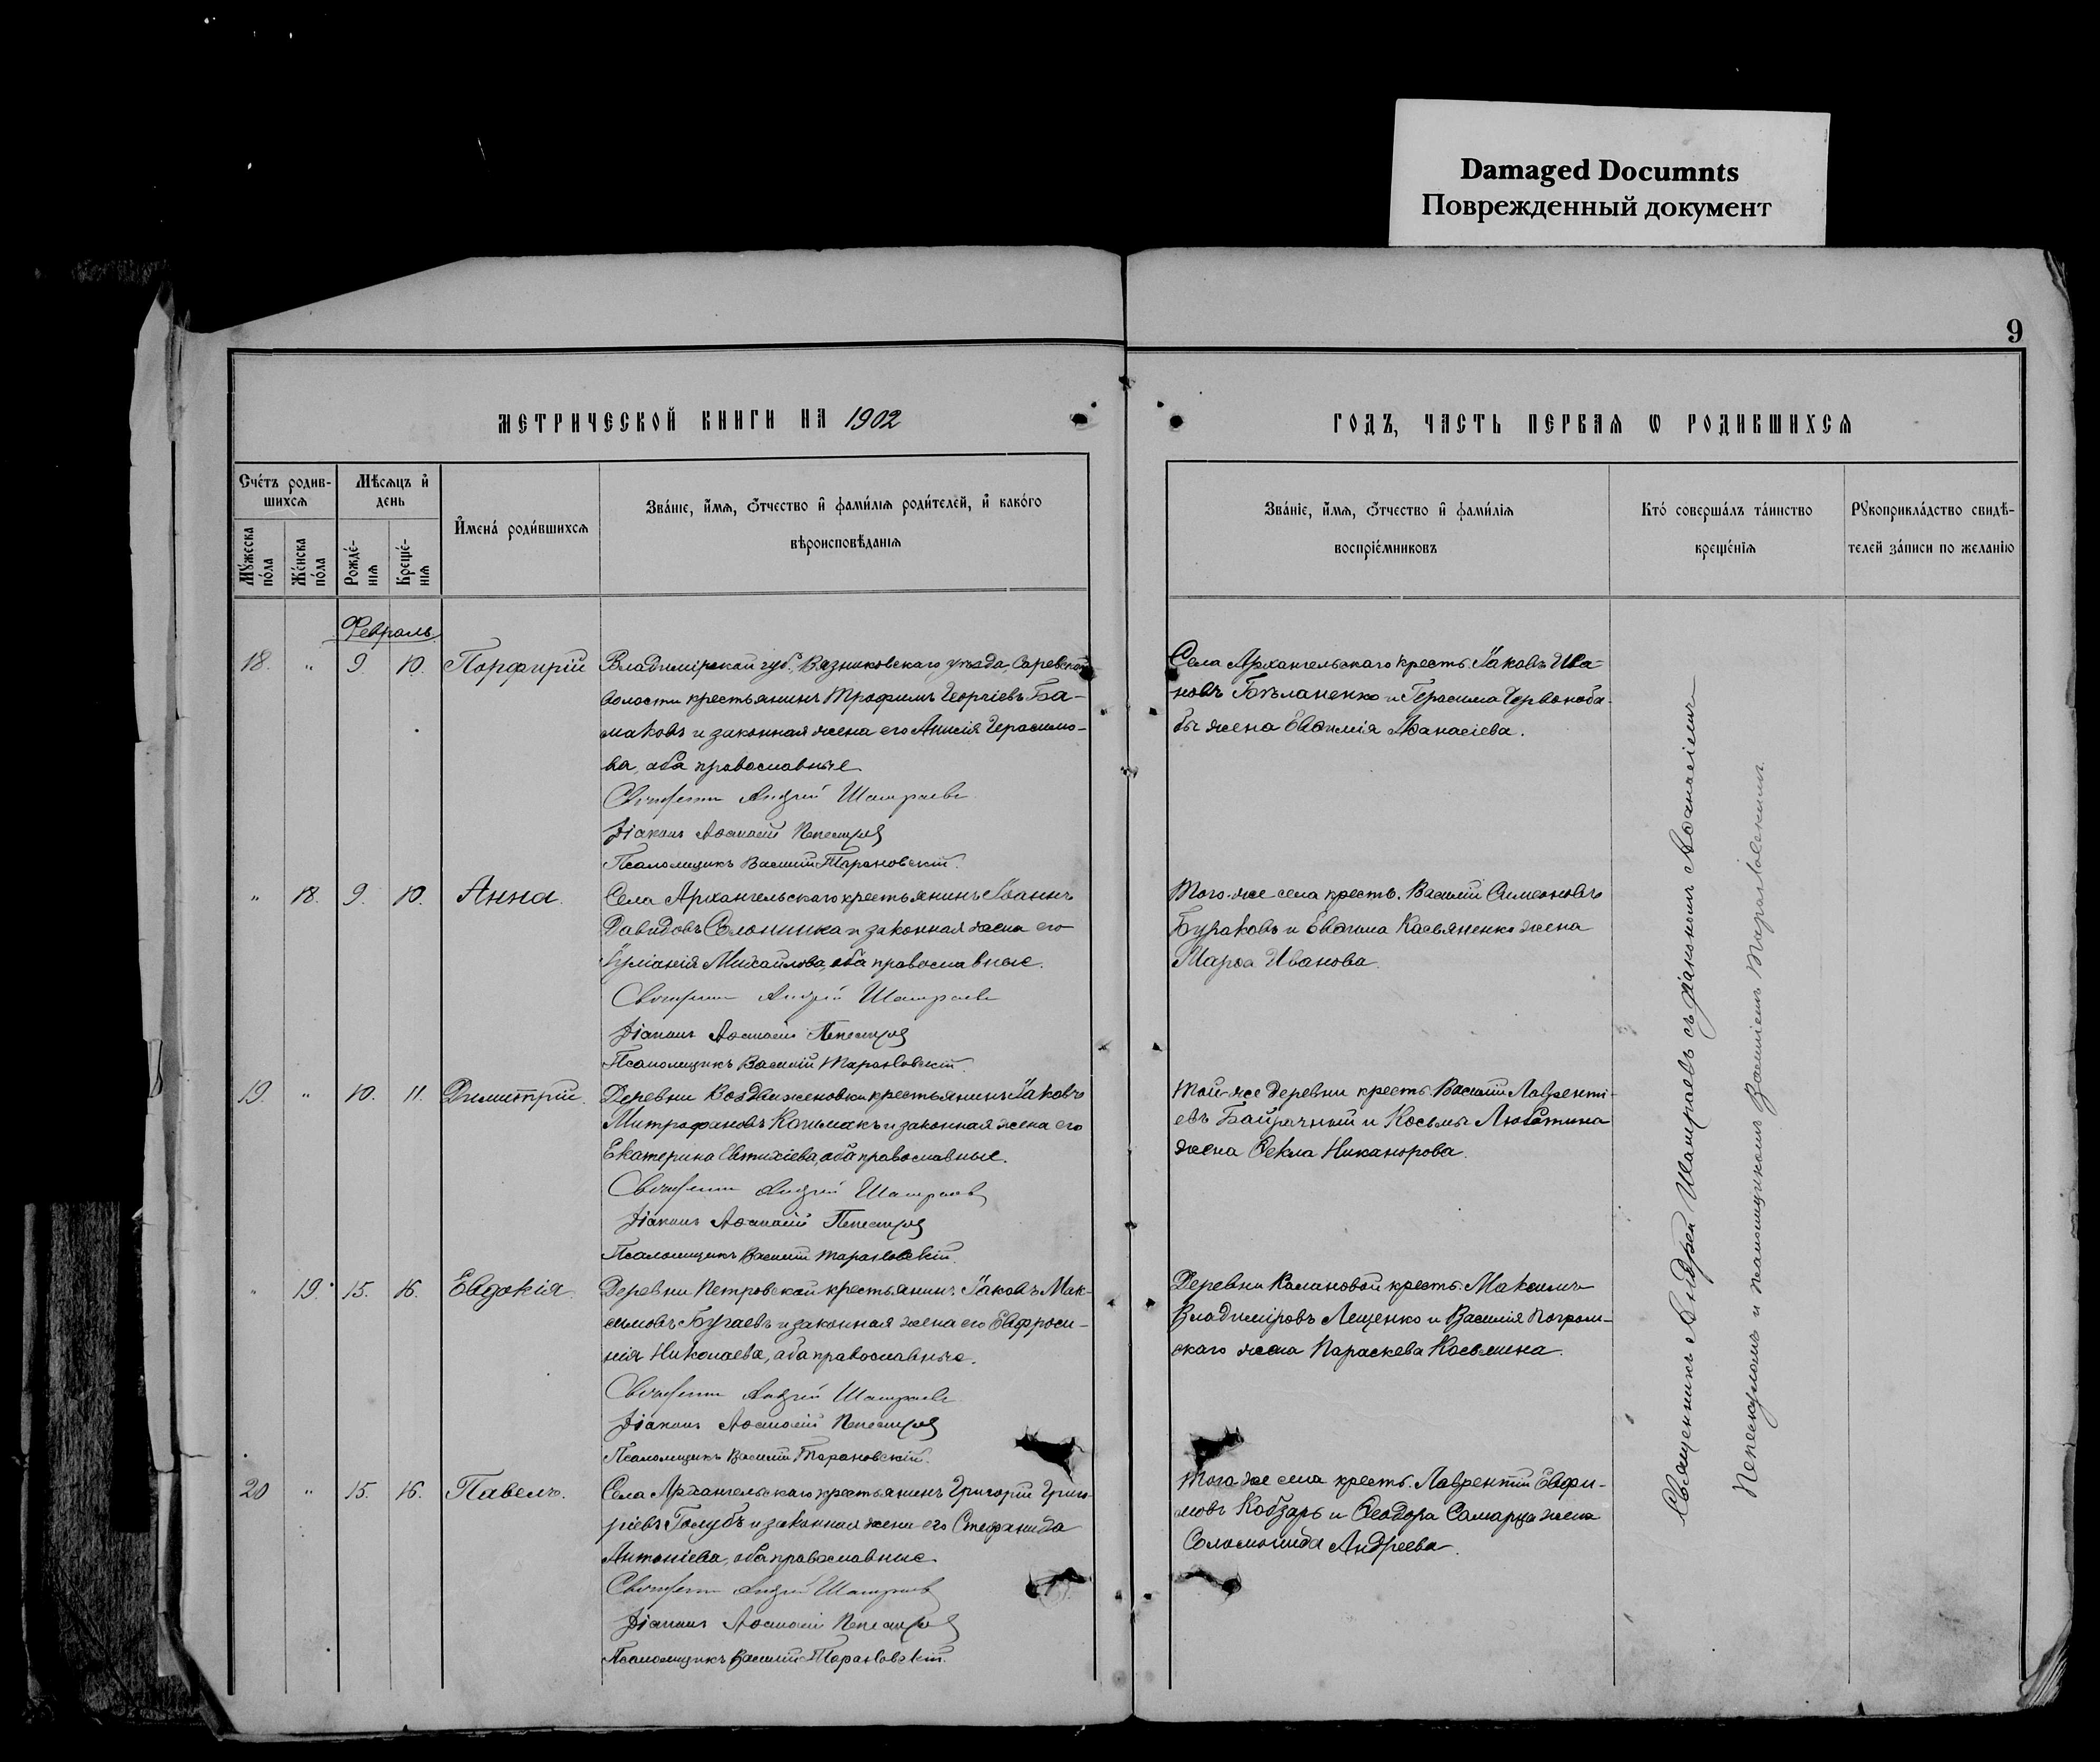 Damaged Documnts
Поврежденный документ
9
МЕТРИЧЕСКОЙ КНИГИ НА 1902
ГОДЪ, ЧАСТЬ ПЕРВАЯ Ѡ РОДИВШИХСЯ
Счéтъ родив-
шихсѧ
Мꙋ́жеска
по́ла
Же́нска
по́ла
Мѣсѧцъ и҆
день
Рожде́-
нїѧ
Креще́-
нїѧ
И҆мена́ роди́вшихсѧ
Зва́нїе, и҆́мѧ, ѻ҆́тчество и҆ фами́лїѧ роди́телей, и҆ како́го
вѣроисповѣ́данїѧ
Зва́нїе, и҆́мѧ, ѻ҆́тчество и҆ фами́лїѧ
воспрїе́мниковъ
Кто́ соверша́лъ та́инство
креще́нїѧ
Рꙋкоприкла́дство свидѣ́-
телей за́писи по жела́нїю
Февраль
18. " 9. 10. Порфирій
Владимірской губ., Вязниковскаго уѣзда, Саревской
волости крестьянинъ Трофимъ Георгіевъ Ба-
маковъ и законная жена его Анисія Герасимо-
ва, оба православные
Священникъ Андрей Шатраевъ
Діаконъ Аѳанасій
Псаломщикъ Василій Тарановскій.
Села Архангельскаго кресть. Іаковъ Ива-
новъ Бѣланенко и Герасима Червоноба-
бы жена Евѳимія Аѳанасіева.
" 18. 9. 10. Анна.
Села Архангельскаго крестьянинъ Іоаннъ
Давидовъ Солонинка и законная жена его
Іуліанія Михайлова, оба православные.
Священникъ Андрей Шатраевъ
Діаконъ Аѳанасій
Псаломщикъ Василій Тарановскій.
Того-же села кресть. Василій Симеоновъ
Бураковъ и Евѳима Касьяненко жена
Марѳа Иванова.
19. " 10. 11. Димитрій.
Деревни Воздвиженовки крестьянинъ Іаковъ
Митрофановъ Колмакъ и законная жена его
Екатерина Евтихіева, оба православные.
Священникъ Андрей Шатраевъ
Діаконъ Аѳанасій
Псаломщикъ Василій Тарановскій.
Той-же деревни кресть. Василій Лавренті-
евъ Байрачный и Косьмы Люботина
жена Ѳекла Никанорова.
" 19. 15. 16. Евдокія.
Деревни Петровской крестьянинъ Іаковъ Мак-
симовъ Бугаевъ и законная жена его Евфроси-
нія Николаева, оба православные.
Священникъ Андрей Шатраевъ
Діаконъ Аѳанасій
Псаломщикъ Василій Тарановскій.
Деревни Калиновой кресть. Максимъ
Владиміровъ Лещенко и Василія Погром-
скаго жена Параскева Косьмина.
20 " 15. 16. Павелъ.
Села Архангельскаго крестьянинъ Григорій Григо-
ріевъ Голубъ и законная жена его Стефанида
Антоніева, оба православные.
Священникъ Андрей Шатраевъ
Діаконъ Аѳанасій
Псаломщикъ Василій Тарановскій.
Того-же села кресть. Лаврентій Евфи-
мовъ Кобзарь и Ѳеодора Самарца жена
Соломонида Андреева.
Священникъ Андрей Шатраевъ съ діакономъ Аѳанасіемъ
и псаломщикомъ Василіемъ Тарановскимъ.